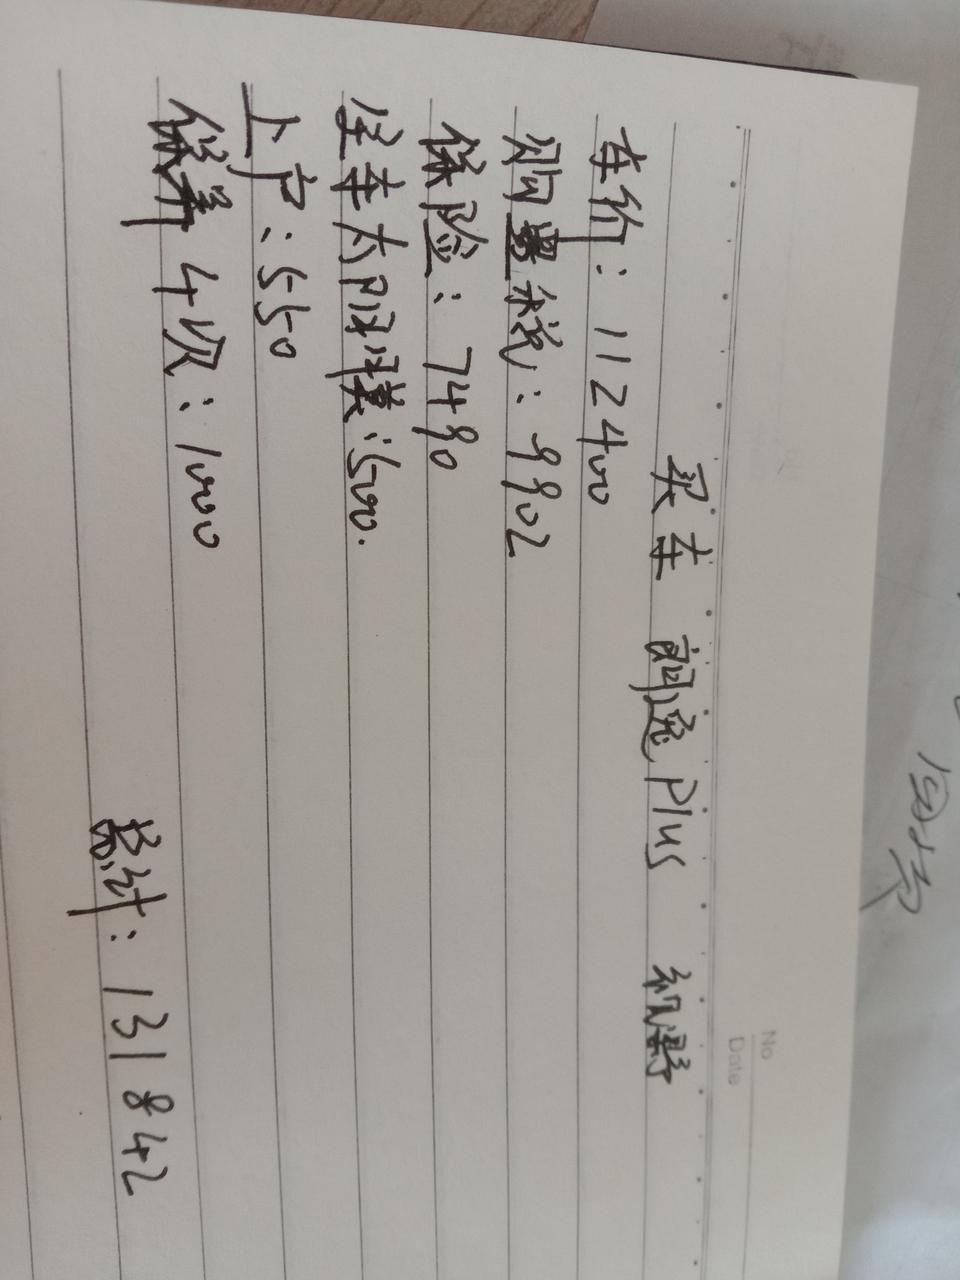 No
Date
买车 朗逸Plus
车价：112400
购置税：9902
保险：7490
全车太阳膜：500.
上户：550
保养4次：1000
总计：131842